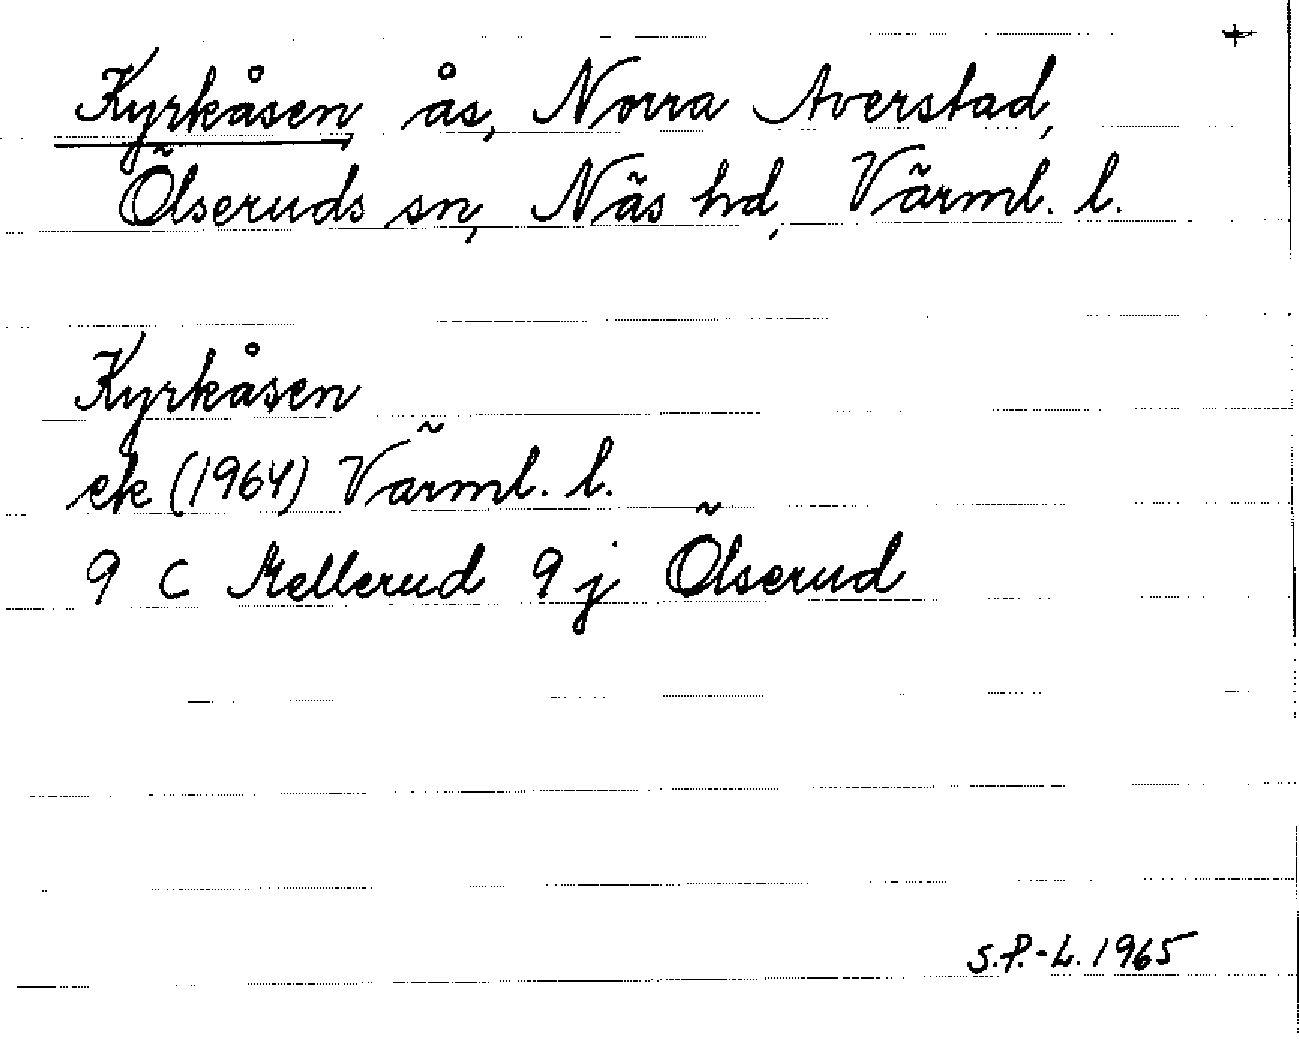 +
Kyrkåsen, ås, Norra Averstad,
Ölseruds sn, Näs hd, Värml. l.
Kyrkåsen
ek (1964) Värml. l.
9 C Mellerud 9 j Ölserud
S.P.-L. 1965